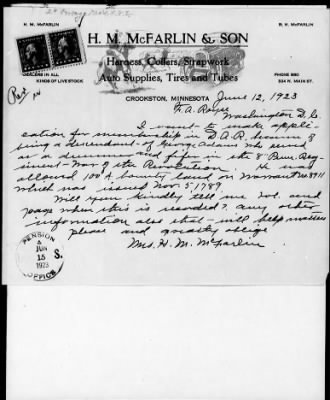 H. M. McFARLIN
R. H. McFARLIN
H. M. McFARLIN & SON
Harness, Collars, Strapwork
Auto Supplies, Tires and Tubes
DEALERS IN ALL
KINDS OF LIVESTOCK
PHONE 580
224 W. MAIN ST.
CROOKSTON, MINNESOTA June 12, 1923
Washington D. C.
I want to make appli-
cation for membership in D.A.R. 
being a descendant of George Adams who served
as a drummer and fifer in the 8" Penn. Reg-
iment - War of the Revolution. He was
allowed 100 A bounty land on Warrant no 8911
which was issued Nov. 5, 1789.
Will you kindly tell me vol. and
page when this is recorded? Any other
information also that will help matters
please and greatly oblige
Mrs. H. M. McFarlin
PENSION
JUN
15
1923
OFFICE
S.